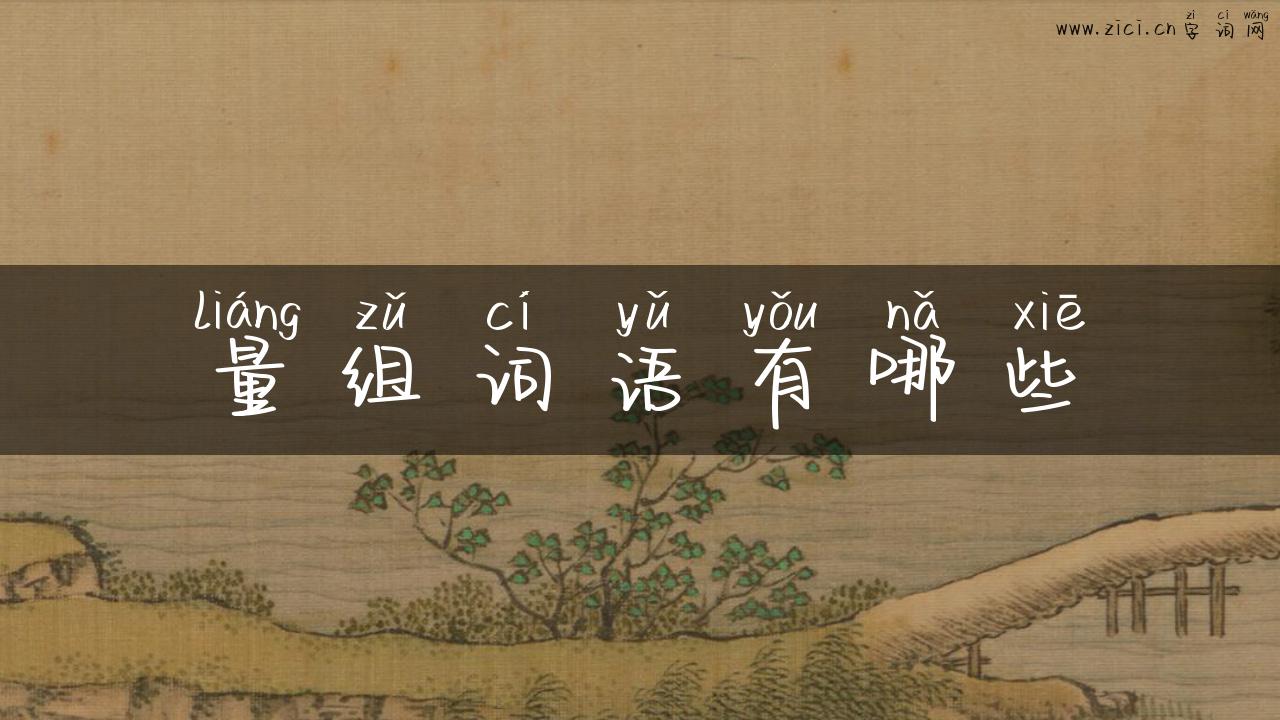 zì cí wǎng
www.zici.cn 字词网
liáng zǔ cí yǔ yǒu nǎ xiē
量组词语有哪些